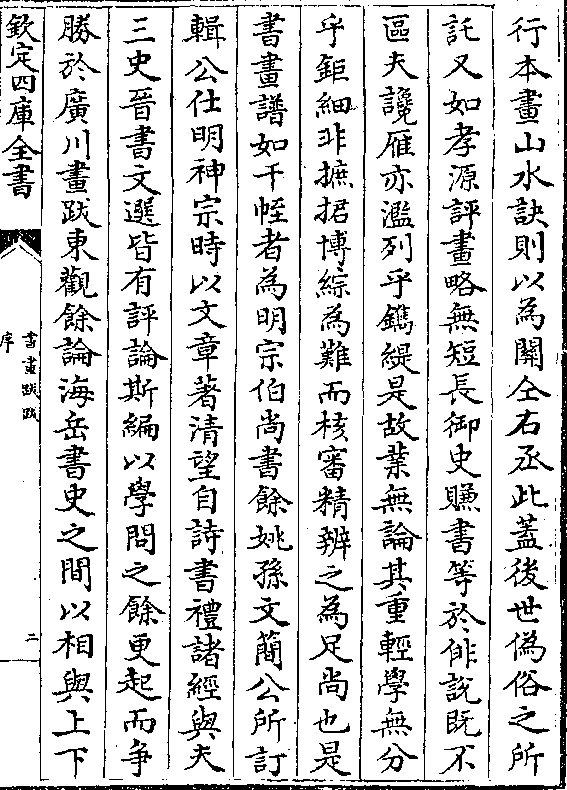 行本畫山水訣則以為關仝右丞此蓋後世偽俗之所
託又如孝源評畫略無短長御史賺書等於俳說既不
區夫讒雁亦濫列乎鐫緹是故業無論其重輕學無分
乎鉅細非摭捃博綜為難而核審精辨之為足尚也是
書畫譜如干帙者為明宗伯尚書餘姚孫文簡公所訂
輯公仕明神宗時以文章著清望自詩書禮諸經與夫
三史晉書文選皆有評論斯編以學問之餘更起而爭
勝於廣川畫跋東觀餘論海岳書史之間以相與上下
欽定四庫全書
書畫跋跋
序
二